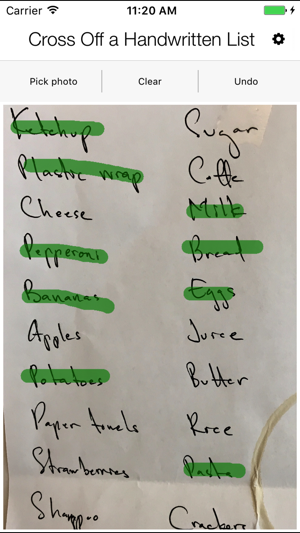 Carrier 11:20 AM
Cross Off a Handwritten List
Pick photo Clear Undo
Ketchup
Plastic wrap
Cheese
Pepperoni
Bananas
Apples
Potatoes
Paper towels
Strawberries
Shampoo
Sugar
Coffe
Milk
Bread
Eggs
Juice
Butter
Rice
Pasta
Crackers